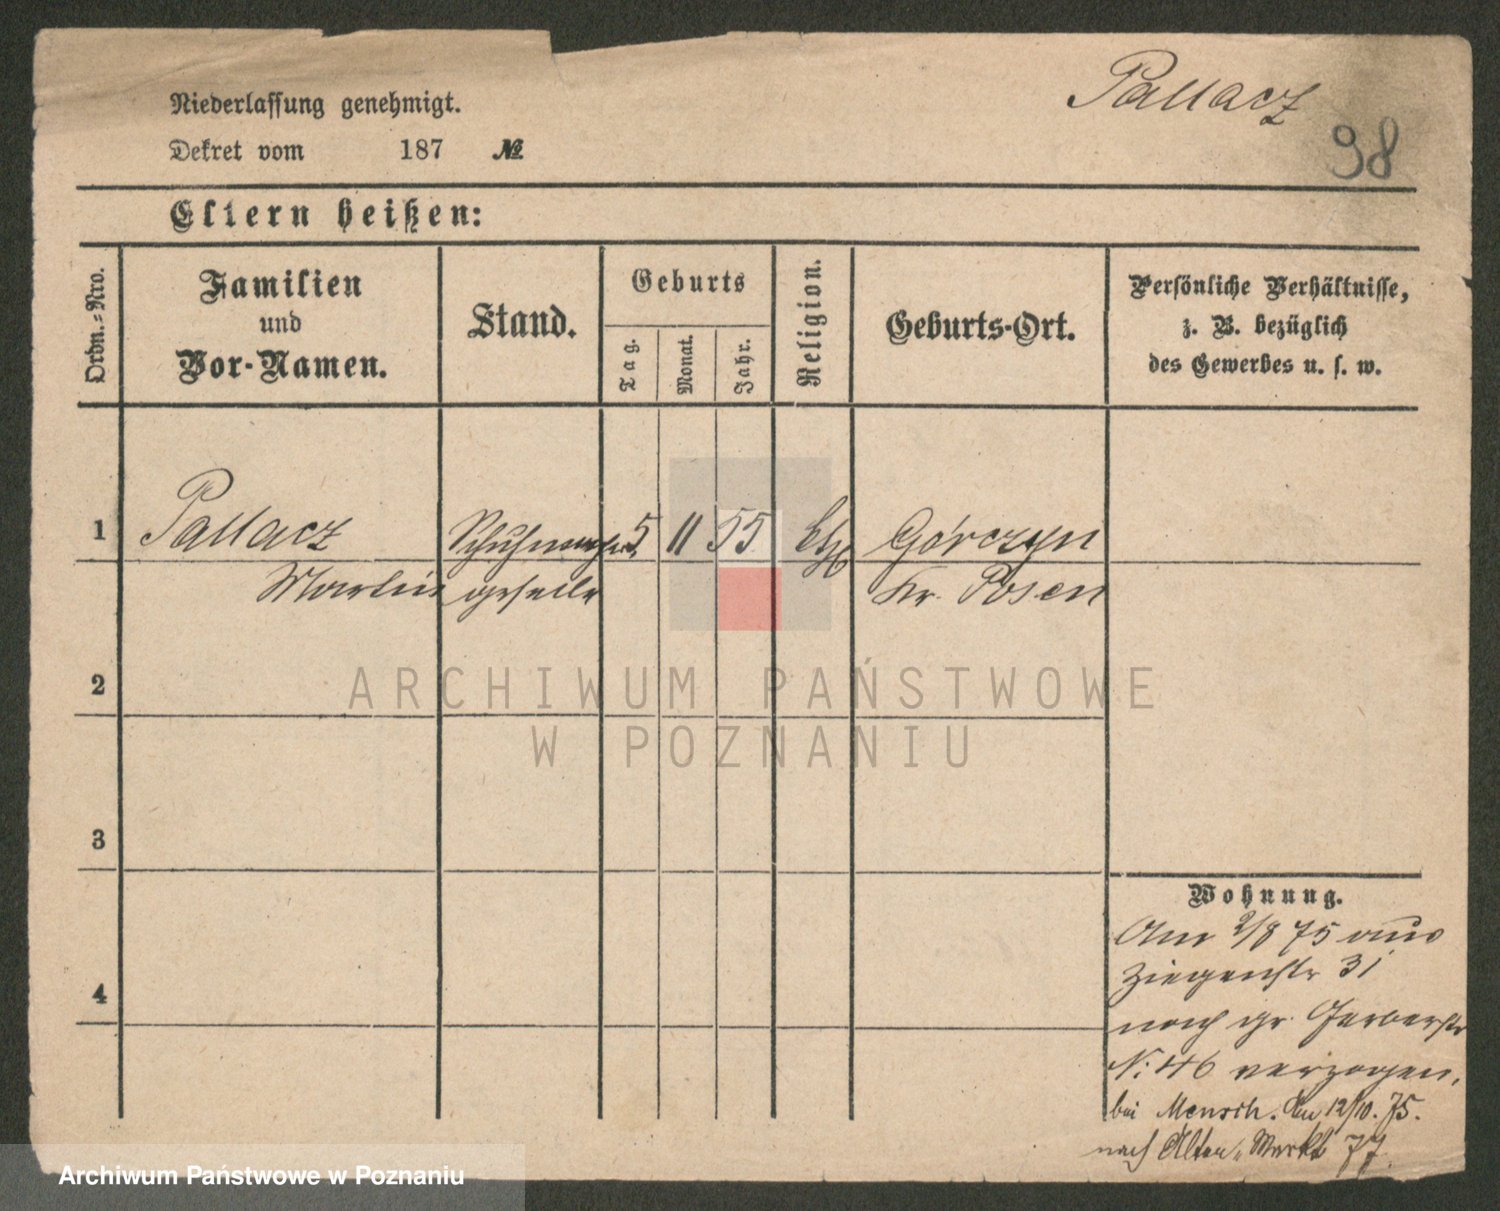 Pallacz
98
Niederlassung genehmigt.
Dekret vom 187 №
Eltern heißen:
Ordn.-Nro.
Familien
und
Vor-Namen.
Stand.
Geburts
Tag.
Monat.
Jahr.
Religion.
Geburts-Ort.
Persönliche Verhältnisse,
z. B. bezüglich
des Gewerbes u. s. w.
1 Pallacz Schuhmacher 5 11 55 Górczyn
Martin geselle Kr. Posen
2
3
4
Wohnung.
Am 2/8 75 aus
Ziegenstr 31
nach gr. Gerberstr
N: 46 verzogen.
bei Mensch. Am 12/10. 75.
nach Alten Markt 77.
ARCHIWUM PAŃSTWOWE
W POZNANIU
Archiwum Państwowe w Poznaniu